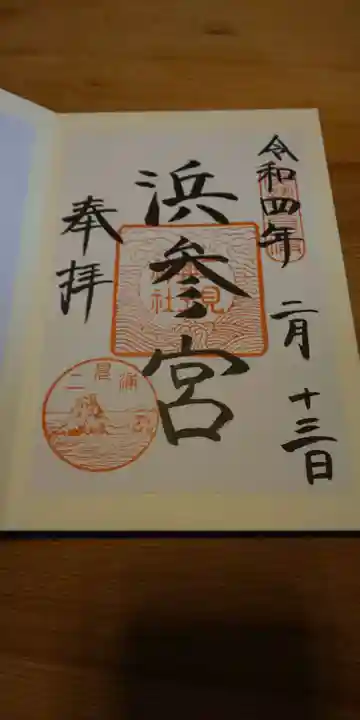 令和四年
二月
十三日
浜参宮
奉拝
二見浦